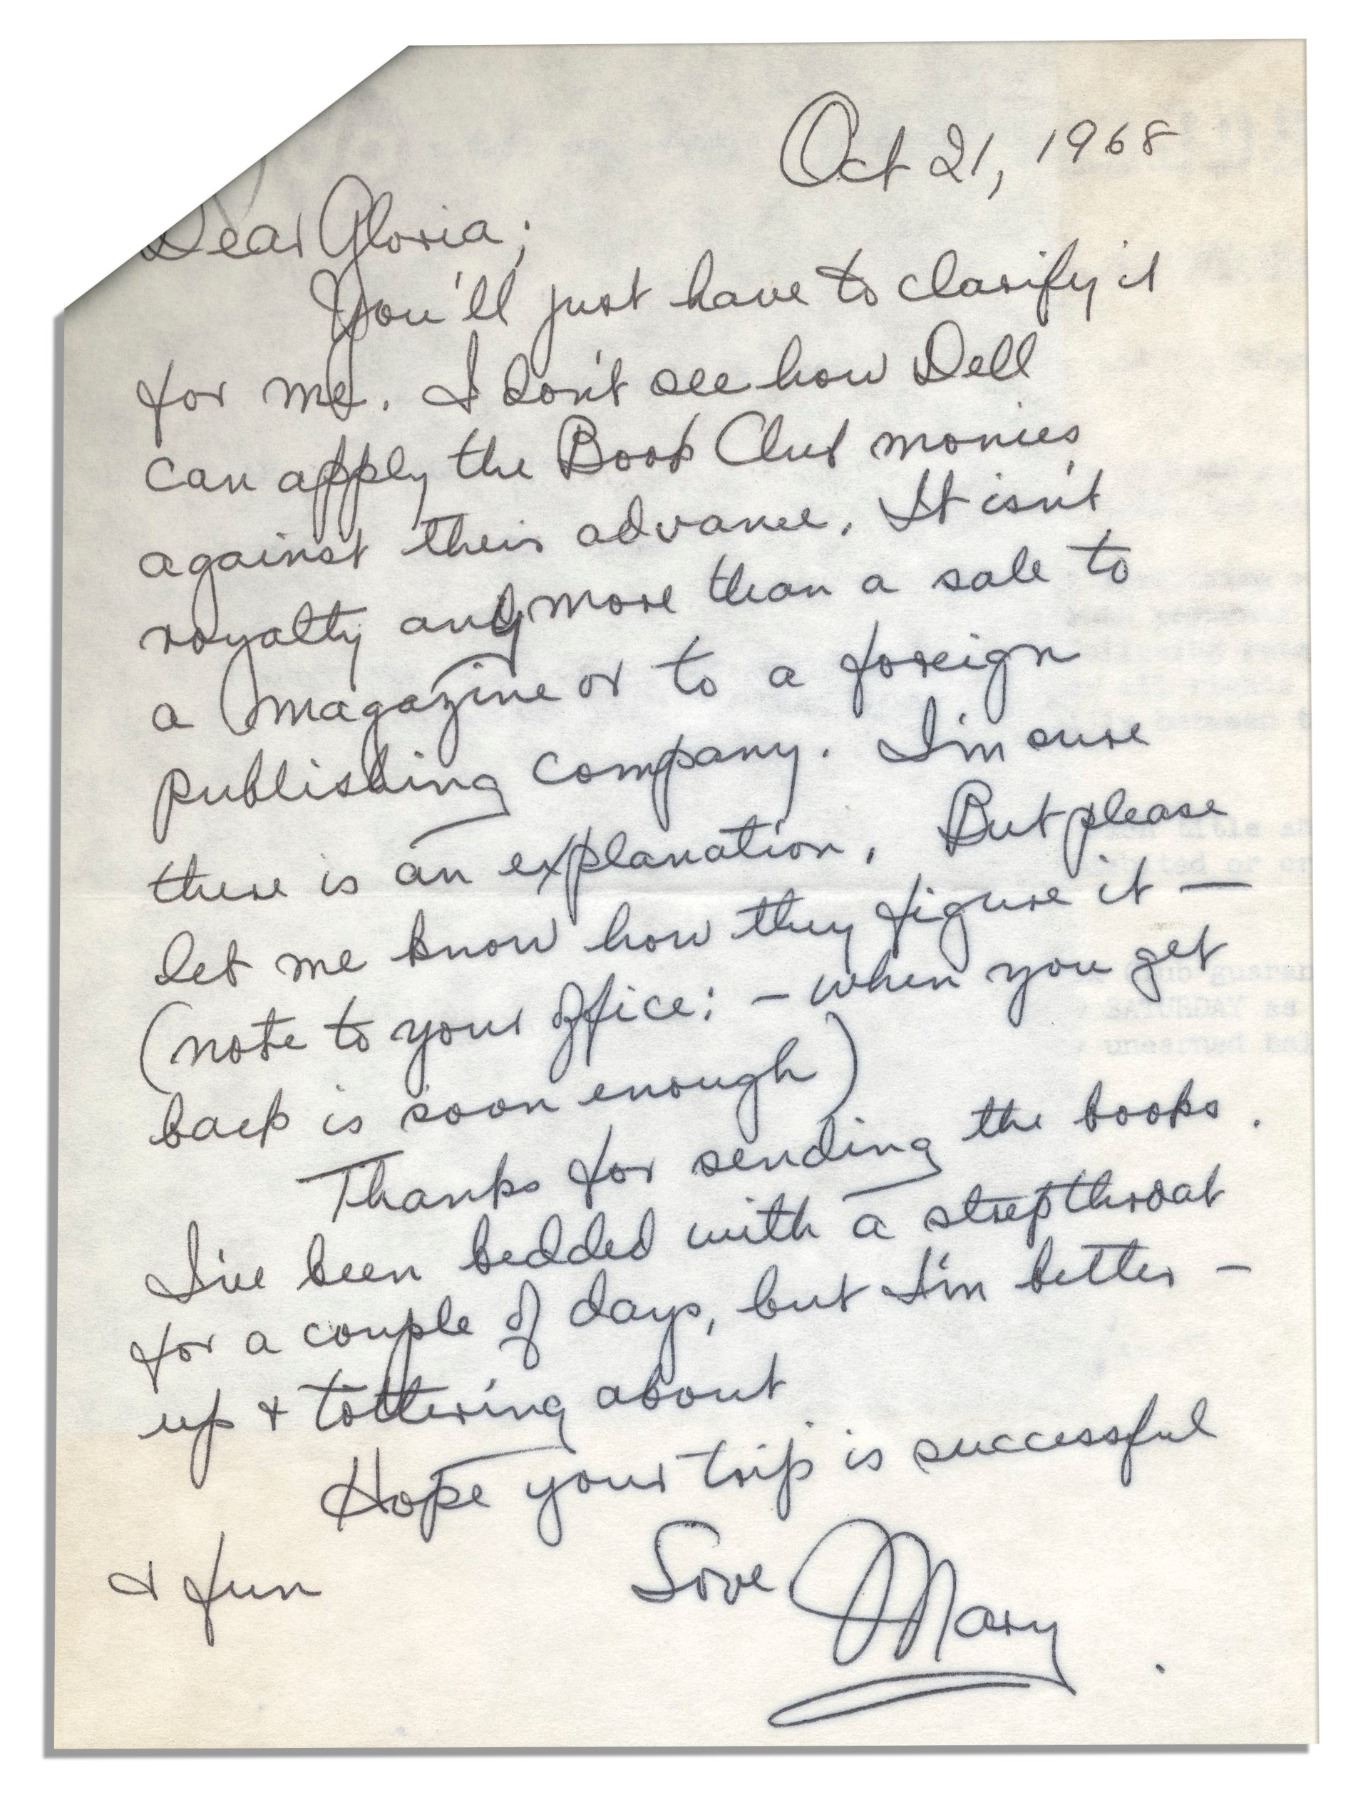 Oct 21, 1968
Dear Gloria;
You'll just have to clarify it
for me. I don't see how Dell
can apply the Book Club monies
against their advance. It isn't
royalty any more than a sale to
a magazine or to a foreign
publishing company. I'm sure
there is an explanation. But please
let me know how they figure it —
(note to your office: — when you get
back is soon enough)
Thanks for sending the books.
I've been bedded with a strepthroat
for a couple of days, but I'm better —
up & tottering about
Hope your trip is successful
& fun
Love Mary